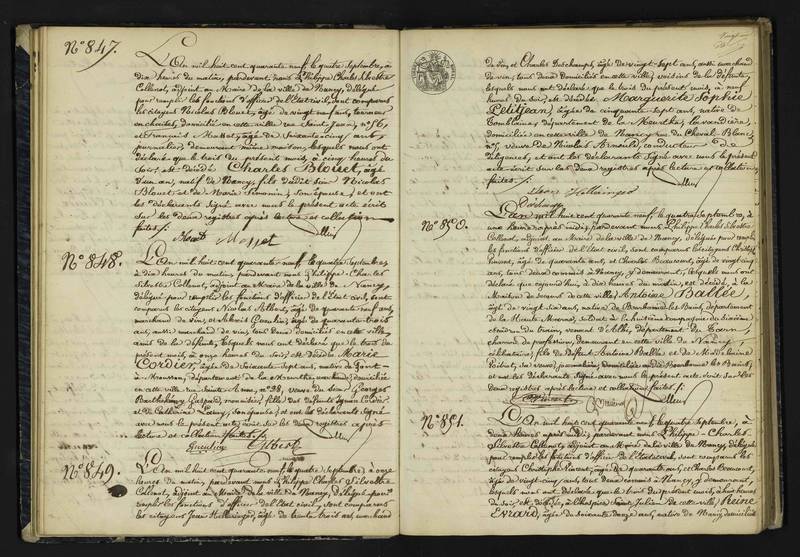 N.° 847.
L'An mil huit cent quarante neuf, le quatre Septembre, à
dix heures du matin, pardevant nous Philippe Charles Silvestre
Collenot, adjoint au Maire de la ville de Nancy, délégué
pour remplir les fonctions d'officier de l'Etat civil, sont comparus
les citoyens Nicolas Blouet, âgé de vingt neuf ans,
domicilié en cette ville rue Saint Jean, n.° 56,
et François Mosset, âgé de Soixante-cinq ans,
journalier, demeurant même maison, lesquels nous ont
déclaré que le trois du présent mois, à cinq heures du
soir, est décédé Charles Blouet, âgé
d'un an, natif de Nancy, fils dudit sieur Nicolas
Blouet et de Marie son épouse; et ont
les déclarants signé avec nous le présent acte écrit
sur les deux registres après lecture et collation
faites /.
Blouet Mosset
N.° 848.
L'An mil huit cent quarante neuf, le quatre Septembre,
à dix heures du matin, pardevant nous Philippe Charles
Silvestre Collenot, adjoint au Maire de la ville de Nancy,
délégué pour remplir les fonctions d'officier de l'Etat civil, sont
comparus les citoyens Nicolas Albert, âgé de quarante neuf ans,
marchand de vin, et âgé de quarante-trois
ans, aussi marchand de vin, tous deux domiciliés en cette ville,
amis de la défunte, lesquels nous ont déclaré que le trois du
présent mois, à onze heures du soir, est décédée Marie
Cordier, âgée de Soixante-sept ans, native de Pont-
à-Mousson, département de la Meurthe, domiciliée
en cette ville rue Sainte Anne, n.° 28, veuve du sieur Georges
Barthélemy Gaspard, fille des défunts Cordier
et de Catherine son épouse; et ont les déclarants signé
avec nous le présent acte écrit sur les deux registres après
lecture et collation faites /.
Albert
N.° 849.
L'An mil huit cent quarante neuf, le quatre Septembre, à onze
heures du matin, pardevant nous Philippe Charles Silvestre
Collenot, adjoint au Maire de la ville de Nancy, délégué pour
remplir les fonctions d'officier de l'Etat civil, sont comparus
les citoyens Jean Hellminger, âgé de trente trois ans, marchand
de vin, et Charles Deschamps, âgé de vingt-sept ans, aussi marchand
de vin, tous deux domiciliés en cette ville, voisins de la défunte,
lesquels nous ont déclaré que le trois du présent mois, à neuf
heures du soir, est décédée Marguerite Sophie
Petitjean, âgée de cinquante sept ans, native de
département de la Meurthe, lavandière,
domiciliée en cette ville de Nancy rue du Cheval-Blanc,
n.° 7, veuve de Nicolas Arnould, conducteur de
Diligences, et ont les déclarants signé avec nous le présent
acte écrit sur les deux registres après lecture et collation
faites /.
Hellminger
N.° 850.
L'an mil huit cent quarante neuf, le quatre septembre, à
une heure après midi, pardevant nous Philippe Charles Silvestre
Collenot, adjoint au Maire de la ville de Nancy, délégué pour remplir
les fonctions d'officier de l'Etat civil, sont comparus les citoyens Christophe
âgé de quarante ans, et Charles Beaucourt, âgé de vingt cinq
ans, tous deux commis à Nancy, y demeurant, lesquels nous ont
déclaré que aujourd'hui, à dix heures du matin, est décédé, à la
Maison de secours de cette ville, Antoine Ballée,
âgé de vingt-six ans, natif de Bourbonne les Bains, département
de la Haute-Marne, Soldat à la huitième compagnie du sixième
escadron du train, venant d'Albi, département du Tarn,
charron de profession, demeurant en cette ville de Nancy,
célibataire, fils de défunt Antoine Ballée et de Madeleine
sa veuve, domiciliée audit Bourbonne les Bains;
et ont les déclarants signé avec nous le présent acte écrit sur les
deux registres après lecture et collation faites /.
N.° 851.
L'An mil huit cent quarante neuf, le quatre septembre, à
deux heures après midi, pardevant nous Philippe Charles
Silvestre Collenot, adjoint au Maire de la ville de Nancy, délégué
pour remplir les fonctions d'officier de l'Etat civil, sont comparus les
citoyens Christophe âgé de quarante ans, et Charles Beaucourt,
âgé de vingt-cinq ans, tous deux commis à Nancy, y demeurant,
lesquels nous ont déclaré que le trois du présent mois, à huit heures
du soir, est décédée, à l'hospice Saint Julien de cette ville, Reine
Evrard, âgée de soixante douze ans, native de Nancy, domiciliée